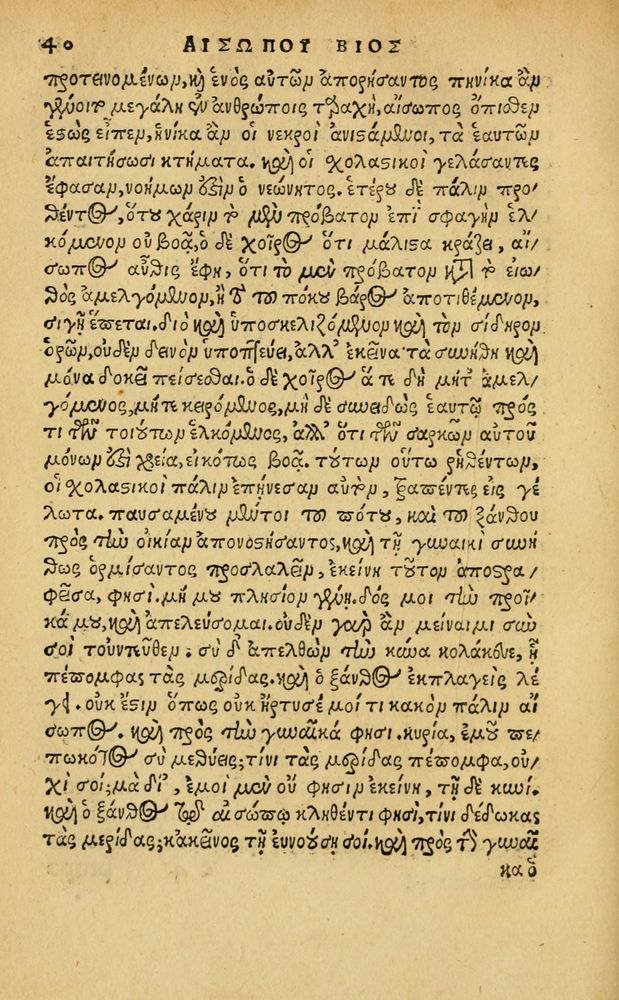 40 ΑΙΣΩΠΟΥ ΒΙΟΣ
προτεινομένων, καὶ ἑνὸς αὐτῶν ἀπορήσαντος πηνίκα ἂν
γένοιτο μεγάλη ἐν ἀνθρώποις ταραχὴ, αἴσωπος ὄπιθεν
ἑστὼς εἶπεν, ἡνίκα ἂν οἱ νεκροὶ ἀνιστάμενοι, τὰ ἑαυτῶν
ἀπαιτήσωσι κτήματα. καὶ οἱ σχολαστικοὶ γελάσαντες
ἔφασαν, νοήμων ἐστὶν ὁ νεώνητος. ἑτέρου δὲ πάλιν προ-
θέντος, ὅτου χάριν τὸ μὲν πρόβατον ἐπὶ σφαγὴν ἑλ-
κόμενον οὐ βοᾷ, ὁ δὲ χοῖρος ὅτι μάλιστα κράζει, αἴ-
σωπος αὖθις ἔφη, ὅτι τὸ μὲν πρόβατον κατὰ τὸ εἰω-
θὸς ἀμελγόμενον, ἢ καὶ τὸ τοῦ πόκου βάρος ἀποτιθέμενον,
σιγῇ ἕπεται. διὸ καὶ ὑποσκελιζόμενον καὶ τὸν σίδηρον
ὁρῶν, οὐδὲν δεινὸν ὑποπτεύει, ἀλλ' ἐκεῖνα τὰ συνήθη καὶ
μόνα δοκεῖ πείσεσθαι. ὁ δὲ χοῖρος ἅτε δὴ μήτ' ἀμελ-
γόμενος, μήτε κειρόμενος, μὴ δὲ συνειδὼς ἑαυτῷ πρός
τι τῶν τοιούτων ἑλκόμενος, ἀλλ' ὅτι τῶν σαρκῶν αὐτοῦ
μόνων ἐστὶ χρεία, εἰκότως βοᾷ. τούτων οὕτω ῥηθέντων,
οἱ σχολαστικοὶ πάλιν ἐπῄνεσαν αὐτὸν, τραπέντες εἰς γέ
λωτα. παυσαμένου μέντοι τοῦ πότου, καὶ τοῦ ξάνθου
πρὸς τὴν οἰκίαν ἀπονοστήσαντος, καὶ τῇ γυναικὶ συνή
θως ὁρμίσαντος προσλαλεῖν, ἐκείνη τοῦτον ἀποστρα-
φεῖσα, φησὶ. μή μου πλησίον γένῃ. δός μοι τὴν προῖ-
κά μου, καὶ ἀπελεύσομαι. οὐδὲν γὰρ ἂν μείναιμι σὺν
σοὶ τοὐντεῦθεν. σὺ δ' ἀπελθὼν τὴν κύνα κολάκευε, ᾗ
πέπομφας τὰς μερίδας. καὶ ὁ ξάνθος ἐκπλαγεὶς λέ
γει. οὐκ ἔστιν ὅπως οὐκ ἤρτυσέ μοί τι κακὸν πάλιν αἴ
σωπος. καὶ πρὸς τὴν γυναῖκά φησι. κυρία, ἐμοῦ πε-
πωκότος σὺ μεθύεις; τίνι τὰς μερίδας πέπομφα, οὐ-
χί σοι; μὰ δί', ἐμοὶ μὲν οὔ φησιν ἐκείνη, τῇ δὲ κυνί.
καὶ ὁ ξάνθος τῷ αἰσώπῳ κληθέντι φησὶ, τίνι δέδωκας
τὰς μερίδας; κἀκεῖνος τῇ εὐνοούσῃ σοι. καὶ πρὸς τὴν γυναῖ
κα ὁ